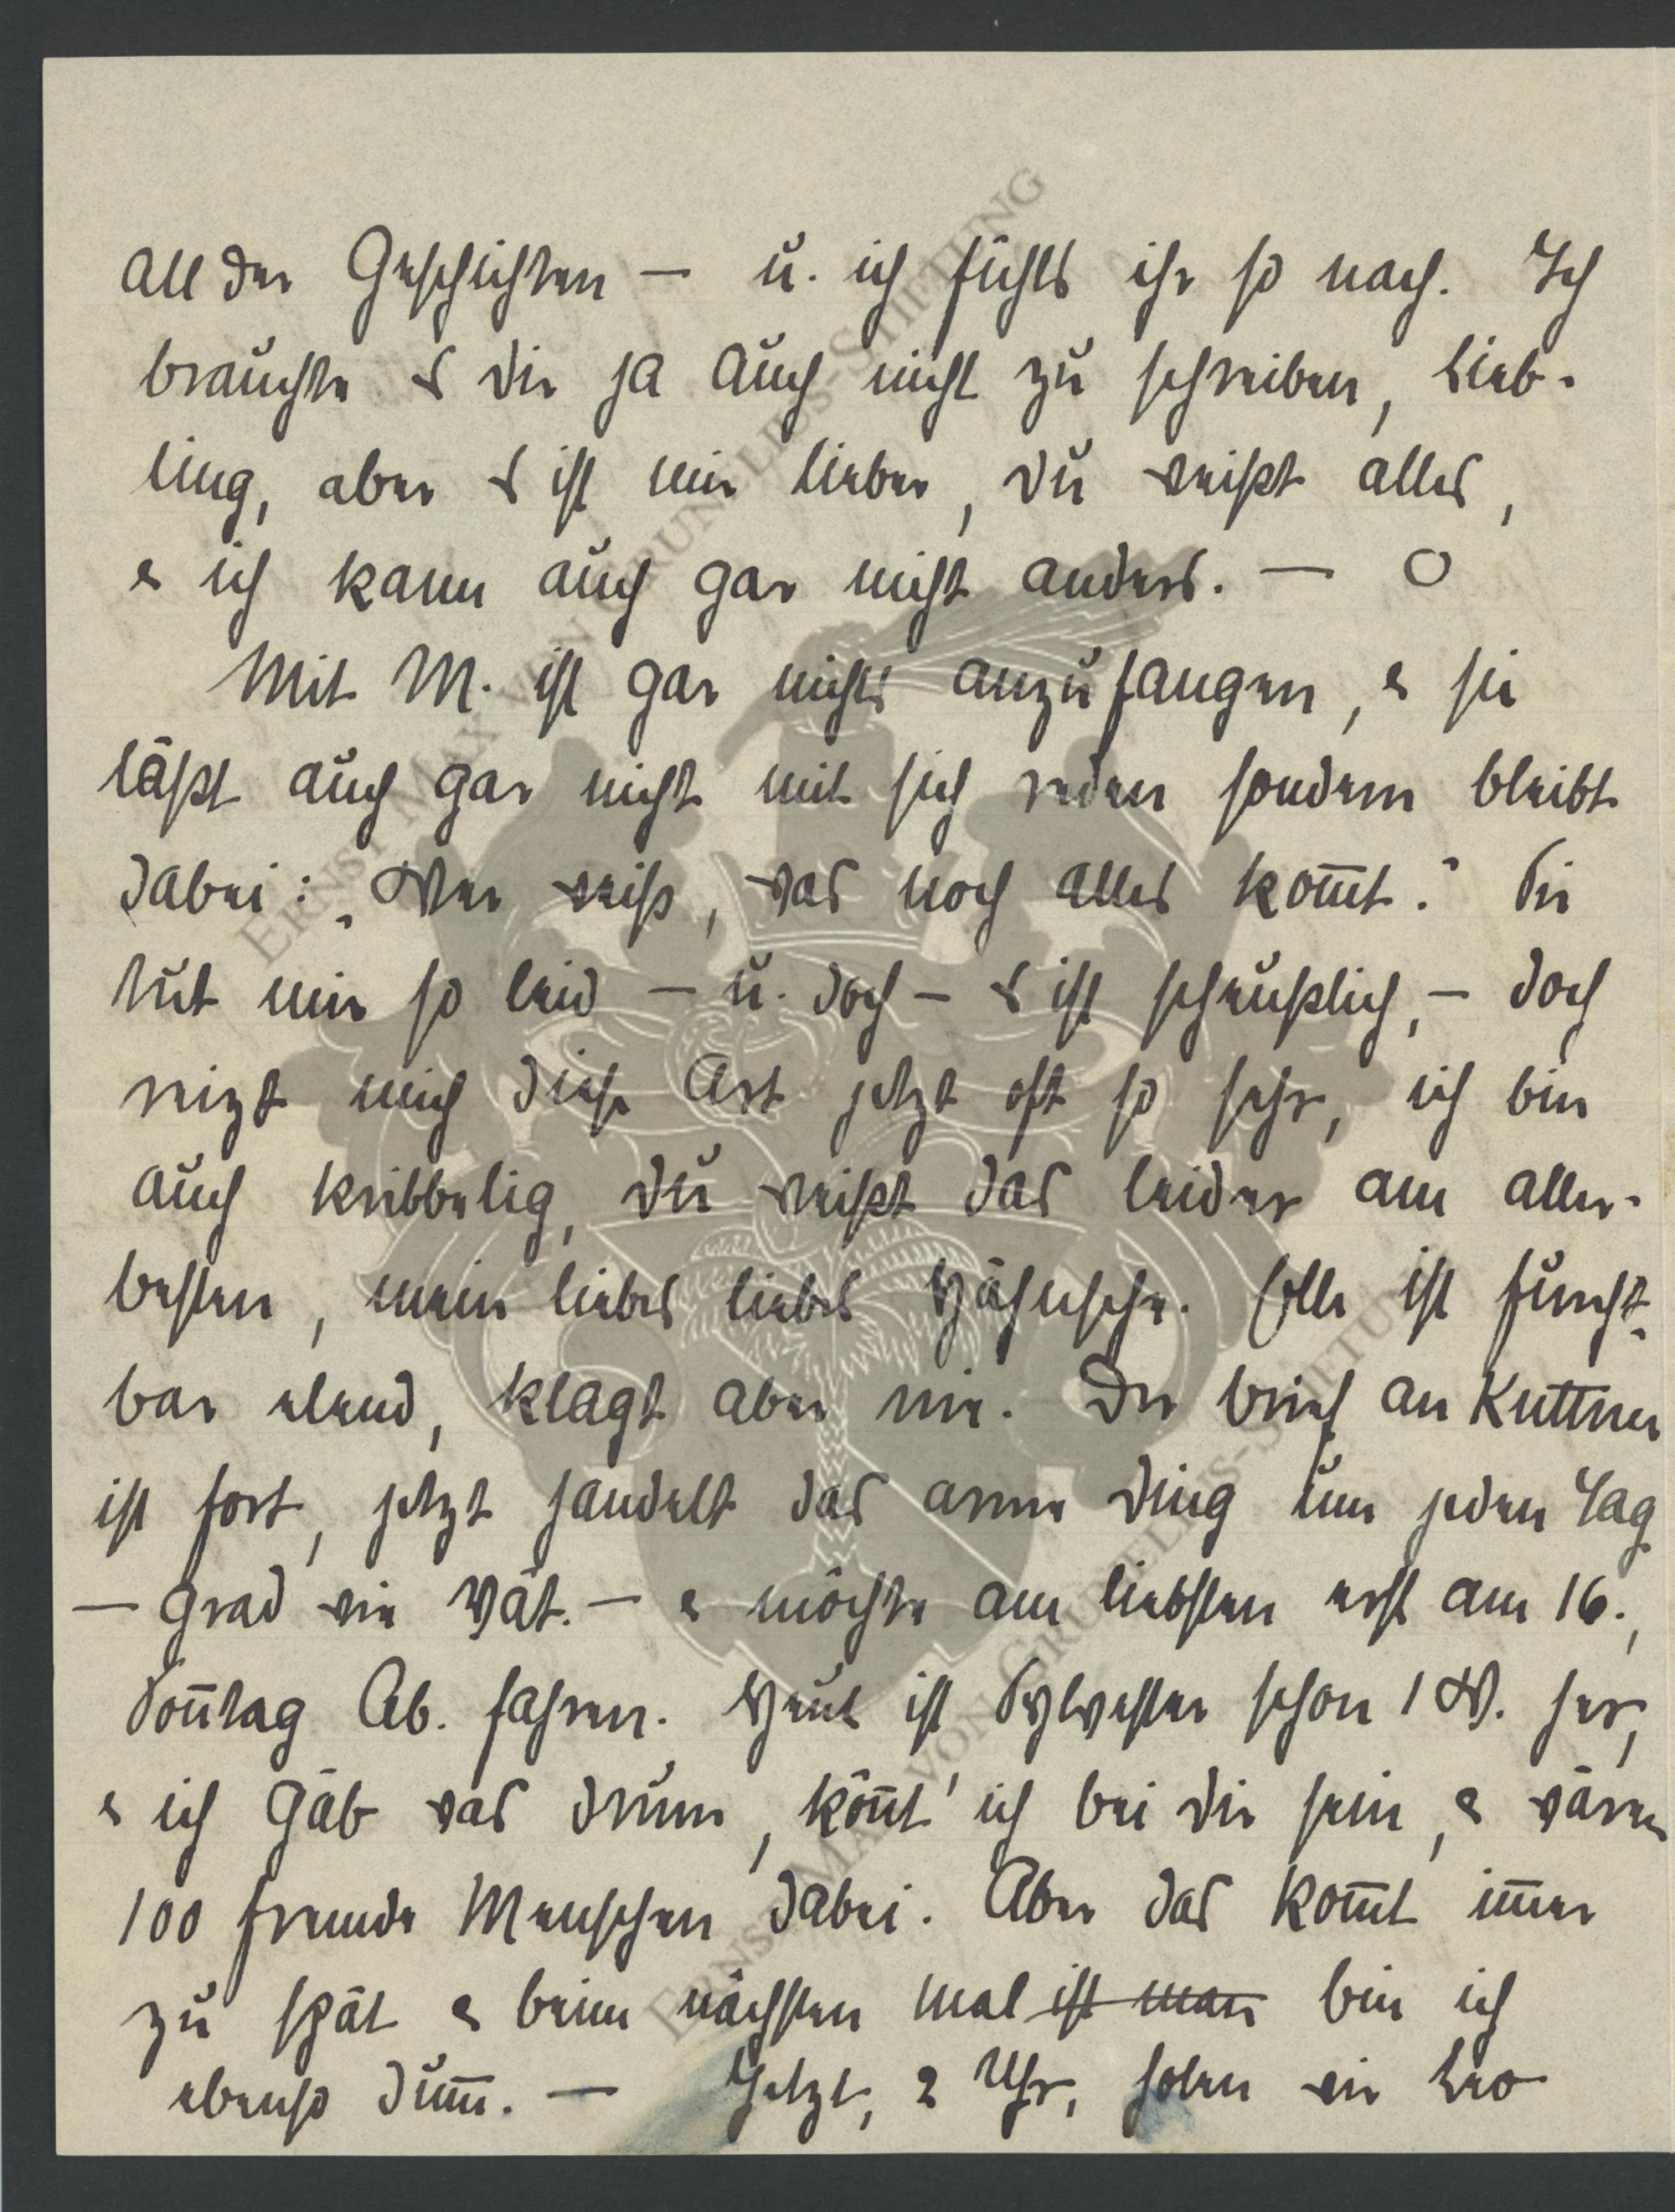 all der Geschichten — u. ich fühls ihr so nach. Ich
brauchte es dir ja auch nicht zu schreiben, Lieb-
ling, aber es ist mir lieber, du weißt alles,
& ich kann auch gar nicht anders. — O
Mit M. ist gar nichts anzufangen, & sie
läßt auch gar nicht mit sich reden sondern bleibt
dabei: „Wer weiß, was noch alles kom̅t.“ Sie
tut mir so leid — u. doch — es ist scheußlich, — doch
reizt mich diese Art jetzt oft so sehr, ich bin
auch kribbelig, du weißt das leider am aller-
besten, mein liebes liebes Hähnsche. Olle ist furcht-
bar elend, klagt aber nie. Der Brief an Kuttner
ist fort, jetzt handelt das arme Ding um jeden Tag
— grad wie Wät. — & möchte am liebsten erst am 16.,
Son̅tag Ab. fahren. Heut ist Sylvester schon 1 W. her,
& ich gäb was drum, kön̅t' ich bei dir sein, & wären
100 fremde Menschen dabei. Aber das kom̅t im̅er
zu spät & beim nächsten Mal ist man bin ich
ebenso dum̅. — Jetzt, 2 Uhr, holen wir Leo
ERNST MAX VON GRUNELIUS-STIFTUNG
ERNST MAX VON GRUNELIUS-STIFTUNG